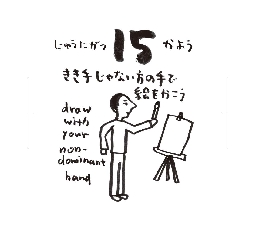 じゅうにがつ 15 かよう
きき手じゃない方の手で
絵をかこう
draw
with
your
non-
dominant
hand